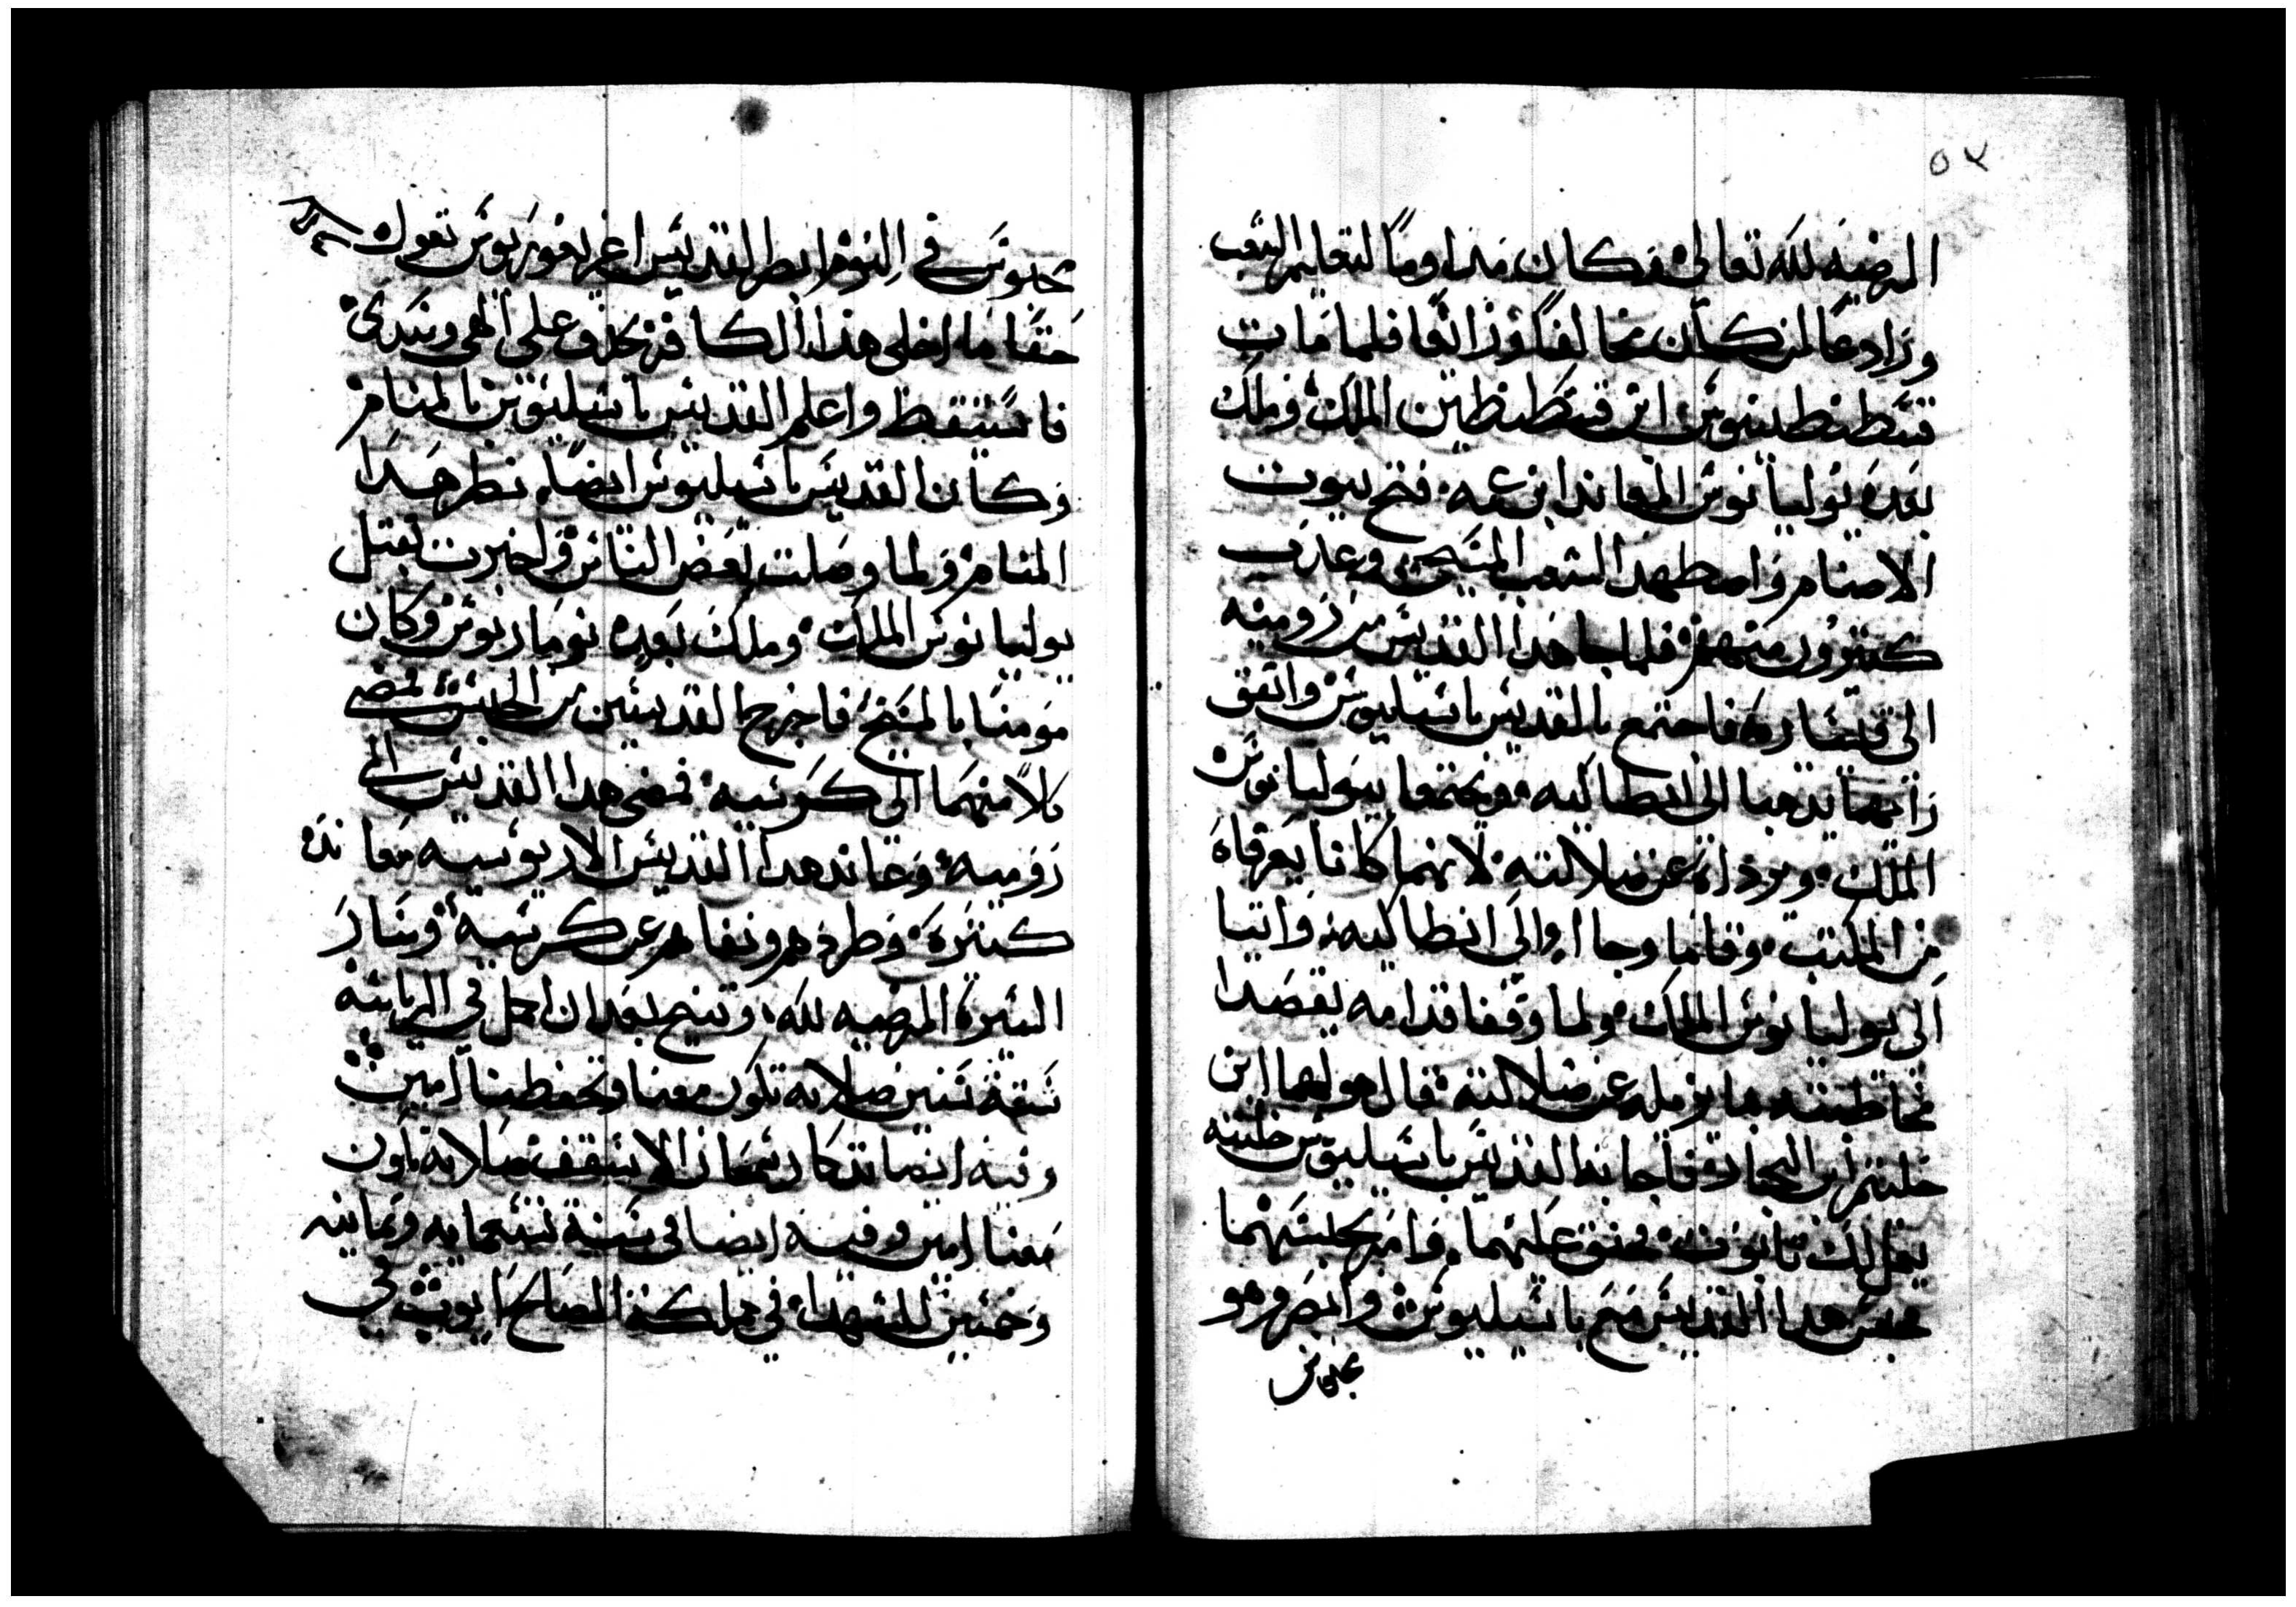 ٥٧
المرضيه لله تعالى فكان مداوما لتعليم الشعب
ورادعا لمن كان مخالفا وزائغا فلما مات
قسطنطينوس ابن قسطنطين الملك وملك
بعده يوليانوس المعاند ابن عمه فتح بيوت
الاصنام واضطهد الشعب المسيحي وعذب
كثيرون منهم فلما جا هذا القديس من روميه
الى قيساريه فاجتمع بالقديس باسيليوس واتفق
رايهما يذهبا الى انطاكيه ويجتمعا بيوليانوس
الملك ويرداه عن ضلالته لانهما كانا يعرفاه
من المكتب وقاما وجاا الى انطاكيه واتيا
الى يوليانوس الملك ولما وقفا قدامه يقصدا
مخاطبته بما يزيله عن ضلالته قال هو لهما اين
خليتم ابن النجار فاجابه القديس باسيليوس خليته
يعمل لك تابوت فحنق عليهما وامر بحبسهما
فحبس هذا القديس مع باسيليوس وابصر وهو
محبوس
محبوس في النوم انظر القديس اغريغوريوس تقول
حقا ما اخلى هذا الكافر يجدف على الهى ويتركني
فاستيقظ واعلم القديس باسيليوس بالمنام
وكان القديس باسيليوس ايضا نظر هذا
المنام ولما وصلت بعض الناس واخبرت بقتل
يوليانوس الملك وملك بعده يوماريوس وكان
مومنا بالمسيح فاخرج القديسين من الحبس فمضى
كلا منهما الى كرسيه فمضى هذا القديس الى
روميه وعاند هذا القديس الاريوسيه معانده
كثيره وطردهم ونفاهم عن كرسيه وسار
السيره المرضيه لله وتنيح بعد ان اكمل في الرياسه
ستة سنين صلاته تكون معنا وتحفظنا امين
وفيه ايضا تذكار سمعان الاسقف صلاته تكون
معنا امين وفيه ايضا في سنة تسعمايه وثمانيه
وخمسين للشهدا في مملكة الصالح ايوب في